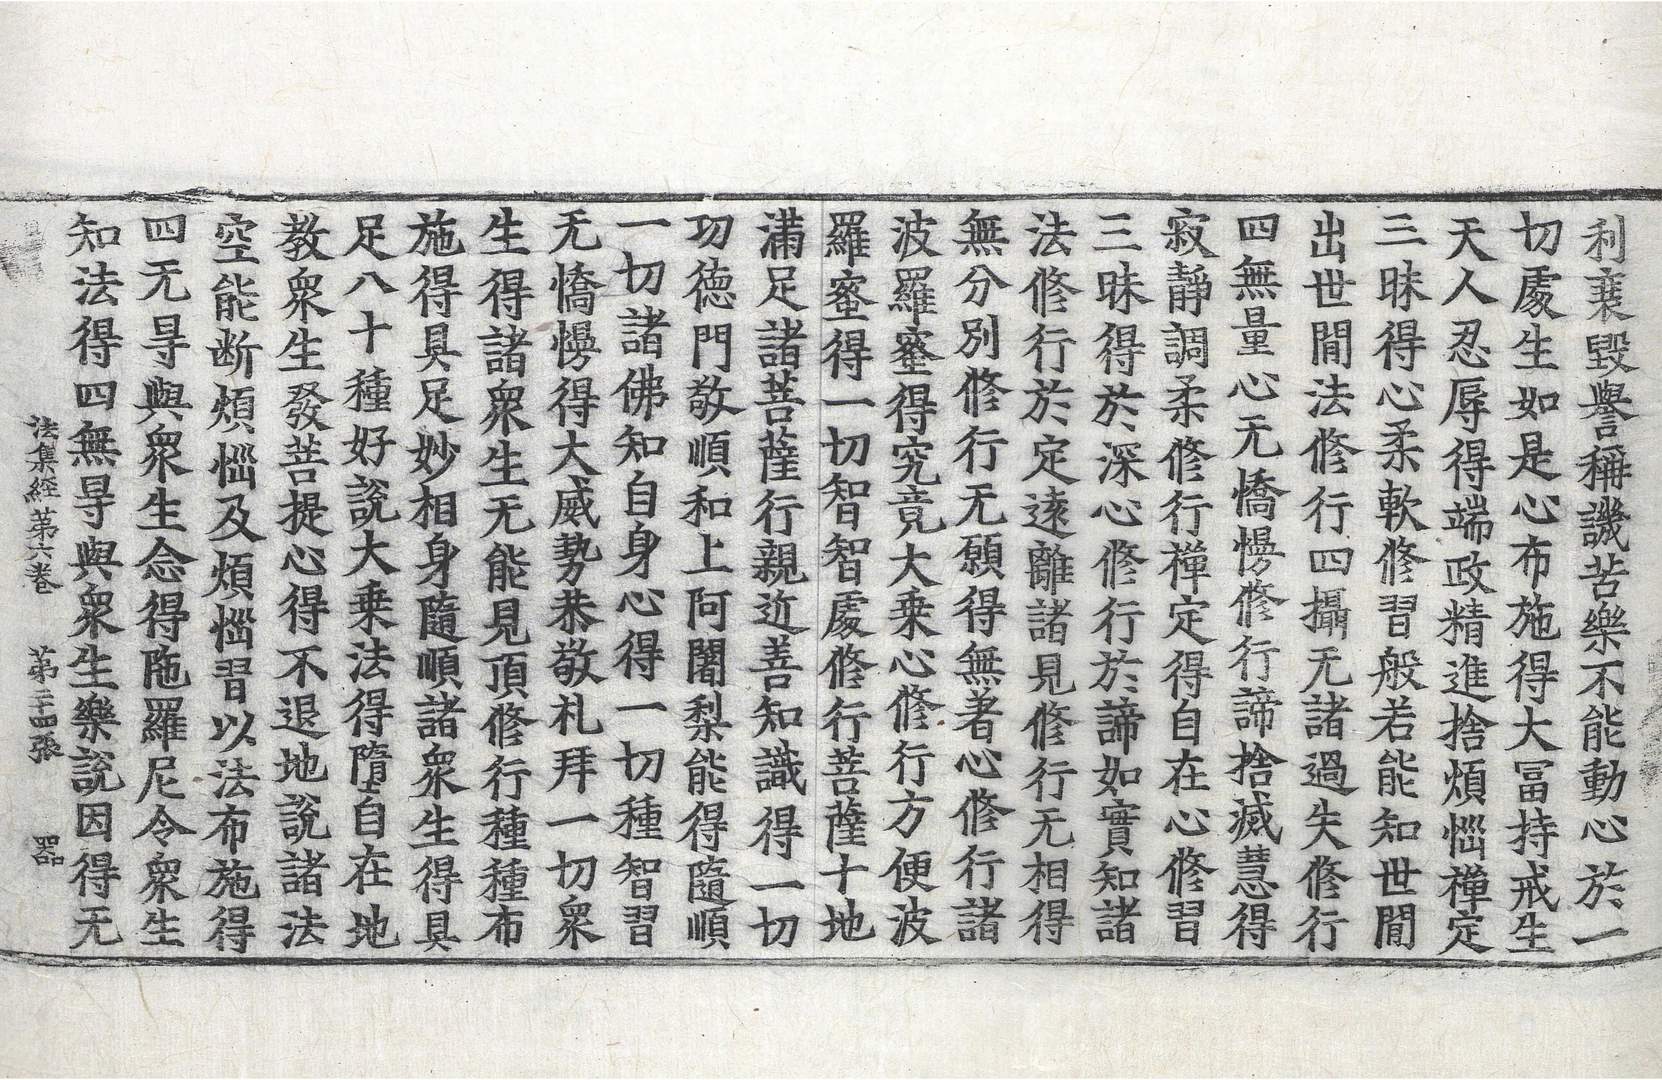 利衰毀譽稱譏苦樂不能動心於一
切處生如是心布施得大冨持戒生
天人忍辱得端政精進捨煩惱禪定
三昧得心柔軟修習般若能知世間
出世間法修行四攝无諸過失修行
四無量心无憍慢修行諦捨滅慧得
寂靜調柔修行禪定得自在心修習
三昧得於深心修行於諦如實知諸
法修行於定遠離諸見修行无相得
無分別修行无願得無著心修行諸
波羅蜜得究竟大乗心修行方便波
羅蜜得一切智智處修行菩薩十地
滿足諸菩薩行親近善知識得一切
功德門敬順和上阿闍梨能得隨順
一切諸佛知自身心得一切種智習
无憍慢得大威勢恭敬礼拜一切衆
生得諸衆生无能見頂修行種種布
施得具足妙相身隨順諸衆生得具
足八十種好說大乗法得隨自在地
教衆生發菩提心得不退地說諸法
空能断煩惱及煩惱習以法布施得
四无㝵與衆生念得陁羅尼令衆生
知法得四無㝵與衆生樂說因得无
法集經苐六卷 苐二十四張 器